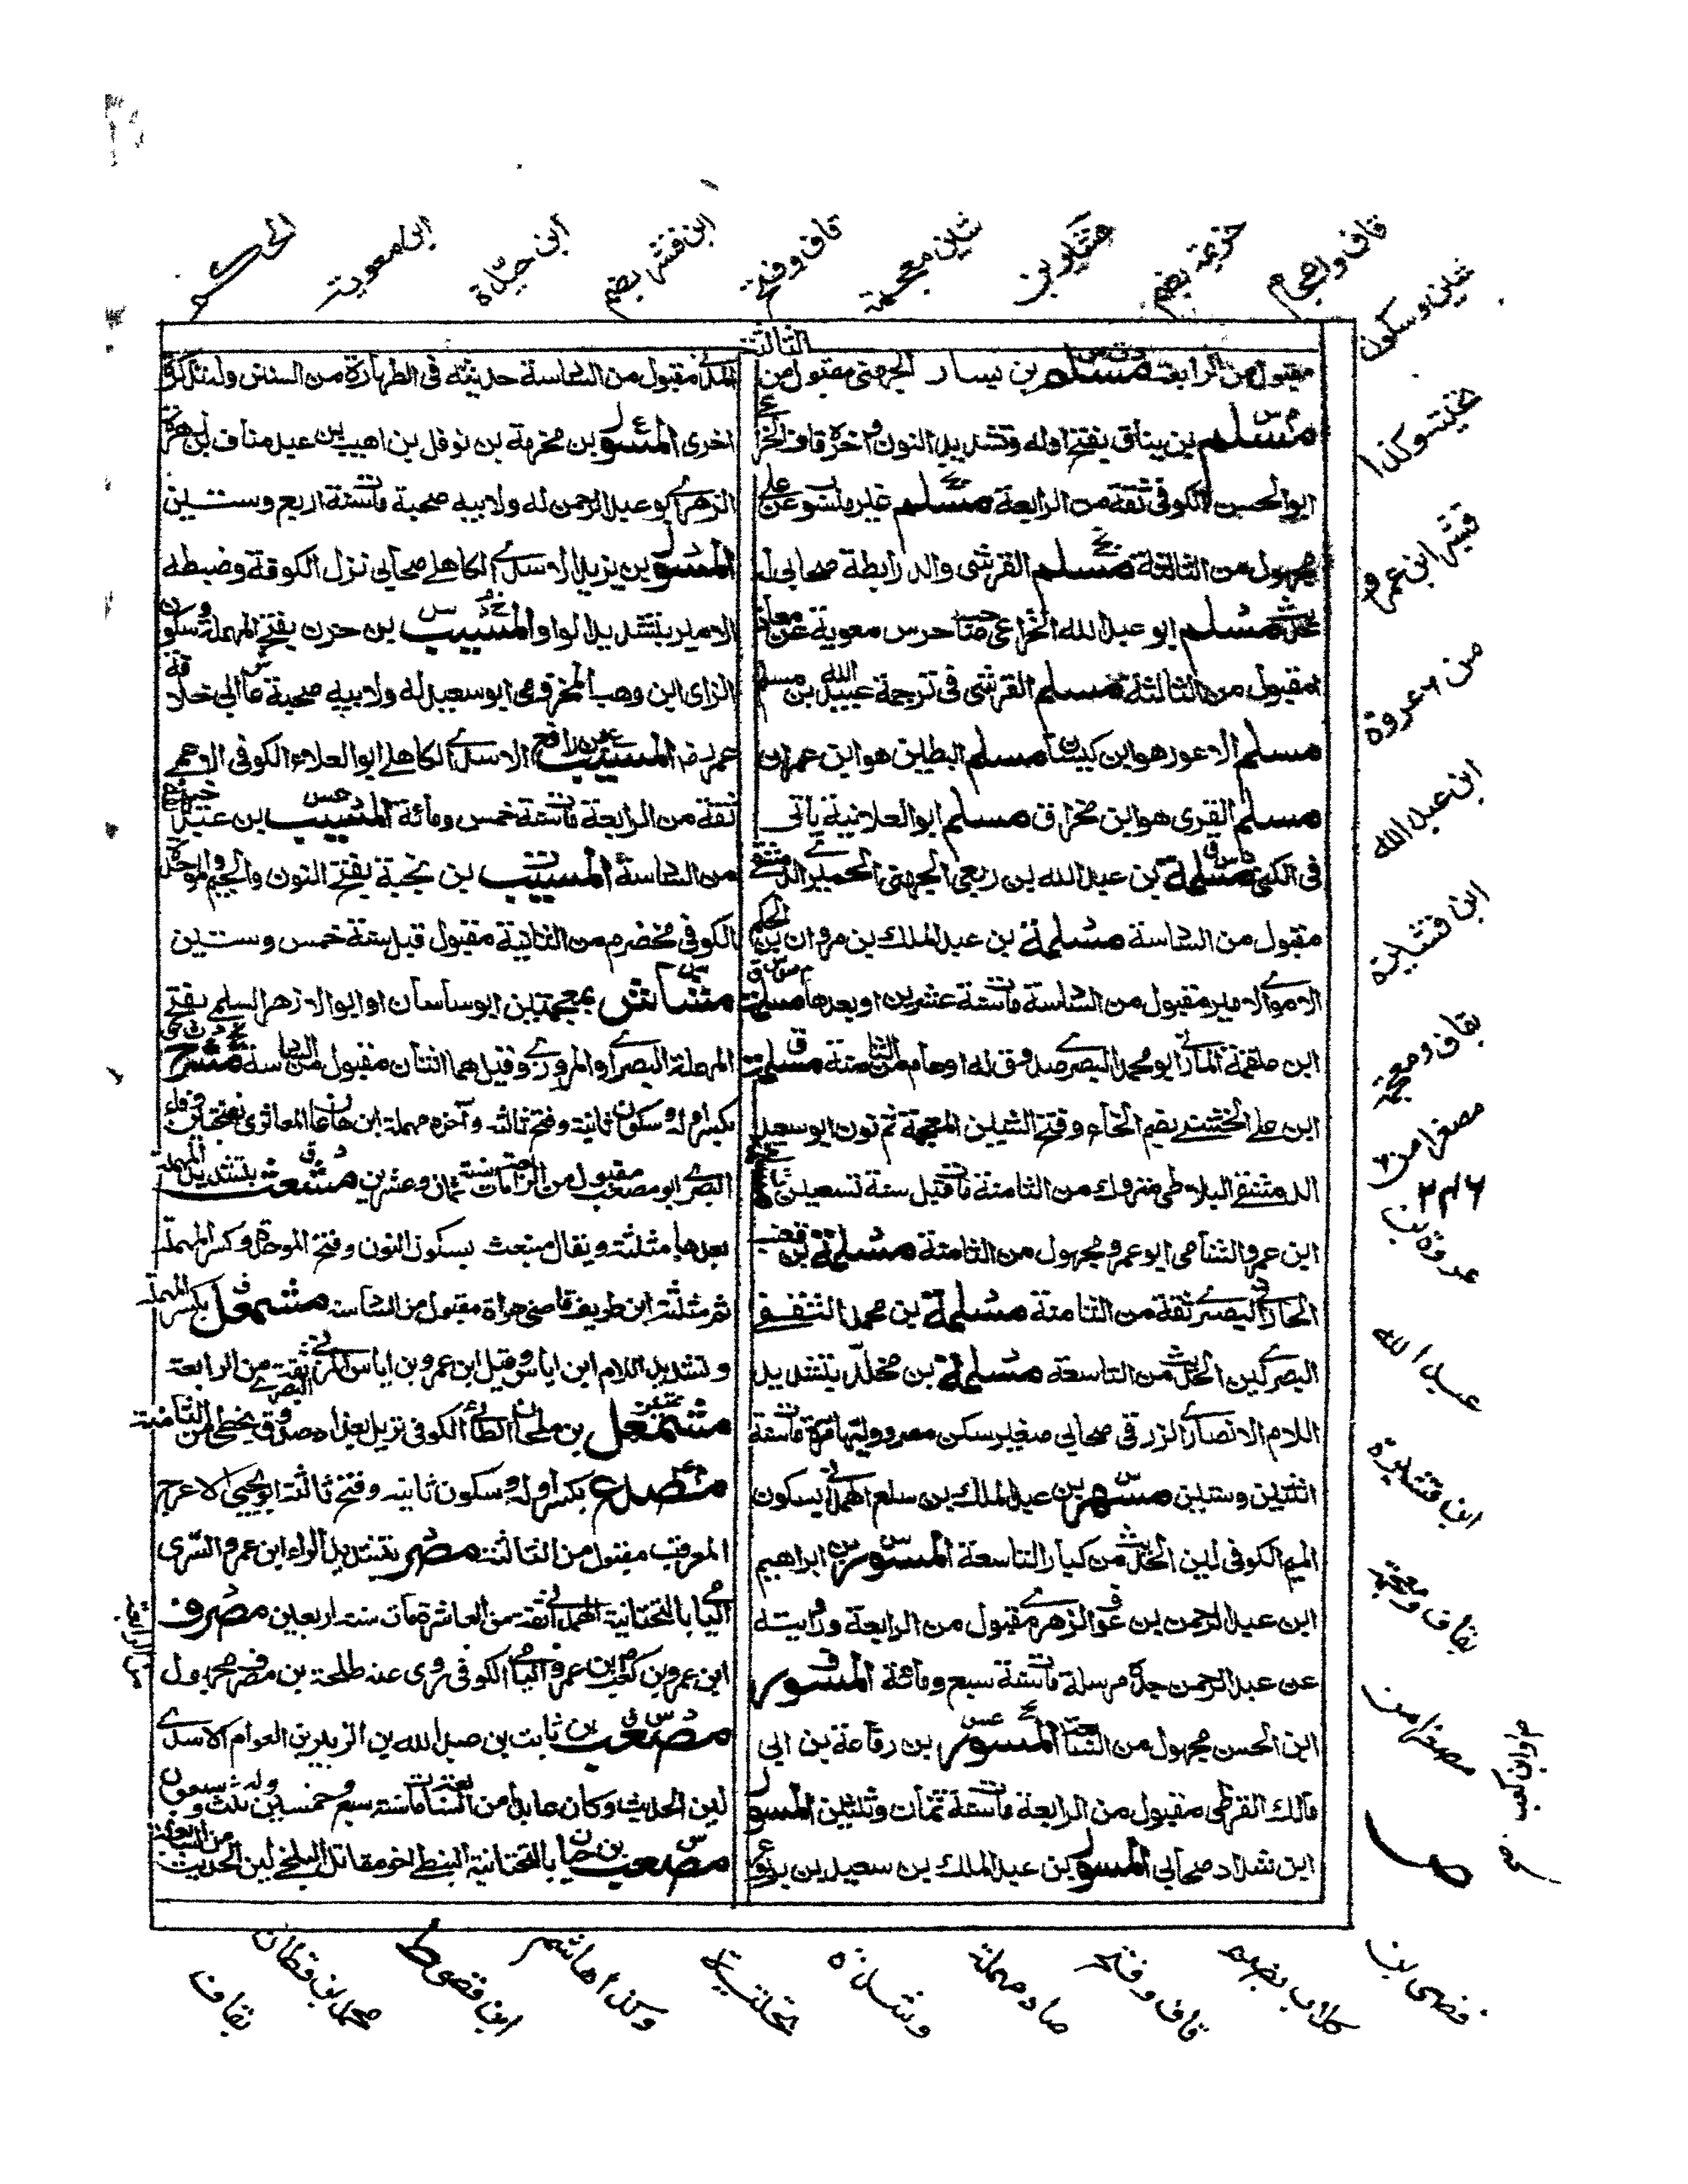 مقبول من الرابعة مسلم بن يسار الجهني مقبول من الثالثة
مسلم بن يناق بفتح اوله وتشديد النون واخره قاف الخزاعي
ابو الحسن الكوفي ثقة من الرابعة مسلم غير منسوب عن علي
مجهول من الثالثة مسلم القرشي والد رابطة صحابي له
حديث مسلم ابو عبد الله الخزاعي صاحب حرس معوية عن معاذ
مقبول من الثالثة مسلم القرشي في ترجمة عبيد الله بن مسلم
مسلم الاعور هو ابن كيسان مسلم البطين هو ابن عمران
مسلم القري هو ابن مخراق مسلم ابو العلانية ياتي
في الكنى مسلمة بن عبد الله بن ربعي الجهني الحميري الدمشقي
مقبول من السادسة مسلمة بن عبد الملك بن مروان بن الحكم
الاموي الامير مقبول من السادسة مات سنة عشرين او بعدها مسلمة
ابن علقمة المازني ابو محمد البصري صدوق له اوهام من الثامنة مسلمة
ابن علي الخشني بضم الخاء وفتح الشين المعجمة ثم نون ابو سعيد
الدمشقي البلاطي متروك من الثامنة مات قبل سنة تسعين
ابن عمرو الشامي ابو عمرو مجهول من الثامنة مسلمة بن قعنب
الحارثي البصري ثقة من الثامنة مسلمة بن محمد الثقفي
البصري لين الحديث من التاسعة مسلمة بن مخلد بتشديد
اللام الانصاري الزرقي صحابي صغير سكن مصر ووليها مرة مات سنة
اثنتين وستين مسهر بن عبد الملك بن سلع الهمداني بسكون
الميم الكوفي لين الحديث من كبار التاسعة المسور بن ابراهيم
ابن عبد الرحمن بن عوف الزهري مقبول من الرابعة وروايته
عن عبد الرحمن جده مرسلة مات سنة سبع ومائة المسور
ابن الحسن مجهول من السابعة المسور بن رفاعة بن ابي
مالك القرظي مقبول من الرابعة مات سنة ثمان وثلثين المسور
ابن شداد صحابي المسور بن عبد الملك بن سعيد بن يربوع
المدني مقبول من السادسة حديثه في الطهارة من السنن وله ذكر
اخرى المسور بن مخرمة بن نوفل بن اهيب بن عبد مناف بن زهرة
الزهري ابو عبد الرحمن له ولابيه صحبة مات سنة اربع وستين
المسور بن يزيد الاسدي الكاهلي صحابي نزل الكوفة وضبطه
الامير بتشديد الواو المسيب بن حزن بفتح المهملة وسكون
الزاي ابن وهب المخزومي ابو سعيد له ولابيه صحبة عاش الى خلافة
عمر رضه المسيب بن رافع الاسدي الكاهلي ابو العلاء الكوفي الاعمى
ثقة من الرابعة مات سنة خمس ومائة المسيب بن عبد خير
من السادسة المسيب بن نجبة بفتح النون والجيم والموحدة
الكوفي مخضرم من الثانية مقبول قبل سنة خمس وستين
مشاش بمعجمتين ابو ساسان او ابو الازهر السلمي بفتح
المهملة البصري او المروزي وقيل هما اثنان مقبول من السادسة مشرح
بكسر اوله وسكون ثانيه وفتح ثالثه وآخره مهملة ابن هاعان المعافري بفتحتين وفاء
البصري ابو مصعب مقبول من الرابعة مات سنة ثمان وعشرين مشعث بتشديد المهملة
بعدها مثلثة ويقال منبعث بسكون النون وفتح الموحدة وكسر المهملة
ثم مثلثة ابن طريف قاضي هراة مقبول من السادسة مشمعل بكسر المهملة
وتشديد اللام ابن اياس وقيل ابن عمرو بن اياس المزني البصري ثقة من الرابعة
مشمعل بن ملحان الطائي الكوفي نزيل بغداد صدوق يخطئ من الثامنة
مصدع بكسر اوله وسكون ثانيه وفتح ثالثه ابو يحيى الاعرج
المعرقب مقبول من الثالثة مصرف بتشديد الراء ابن عمرو السري
اليامي بالتحتانية الهمداني ثقة من العاشرة مات سنة اربعين مصرف
ابن عمرو بن كعب بن عمرو اليامي الكوفي روى عنه طلحة بن مصرف مجهول
من الرابعة
مصعب بن ثابت بن عبد الله بن الزبير بن العوام الاسدي
لين الحديث وكان عابدا من السابعة مات سنة سبع وخمسين وله ثلث وسبعون
مصعب بن حيان بالتحتانية النبطي اخو مقاتل البلخي لين الحديث من السابعة
الحكم
ابن معوية
ابن حيدة
ابن قشير بضم
قاف وفتح
شين معجمة
خزيمة بضم
قاف واعجام
شين وسكون
تحتيتين وكذا
قشير ابن عمرو
من عروة
ابن عبد الله
ابن قشير
بقاف ومعجمة
مصغرا من
٢٣٦
عروة بن
عبد الله
ابن قشير
بقاف ومعجمة
مصغرا من
قصي بن
كلاب بضم
قاف وفتح
صاد مهملة
وشدة
تحتية
وكذا هاشم
ابن قصوط
محمد بن قطان
بقاف